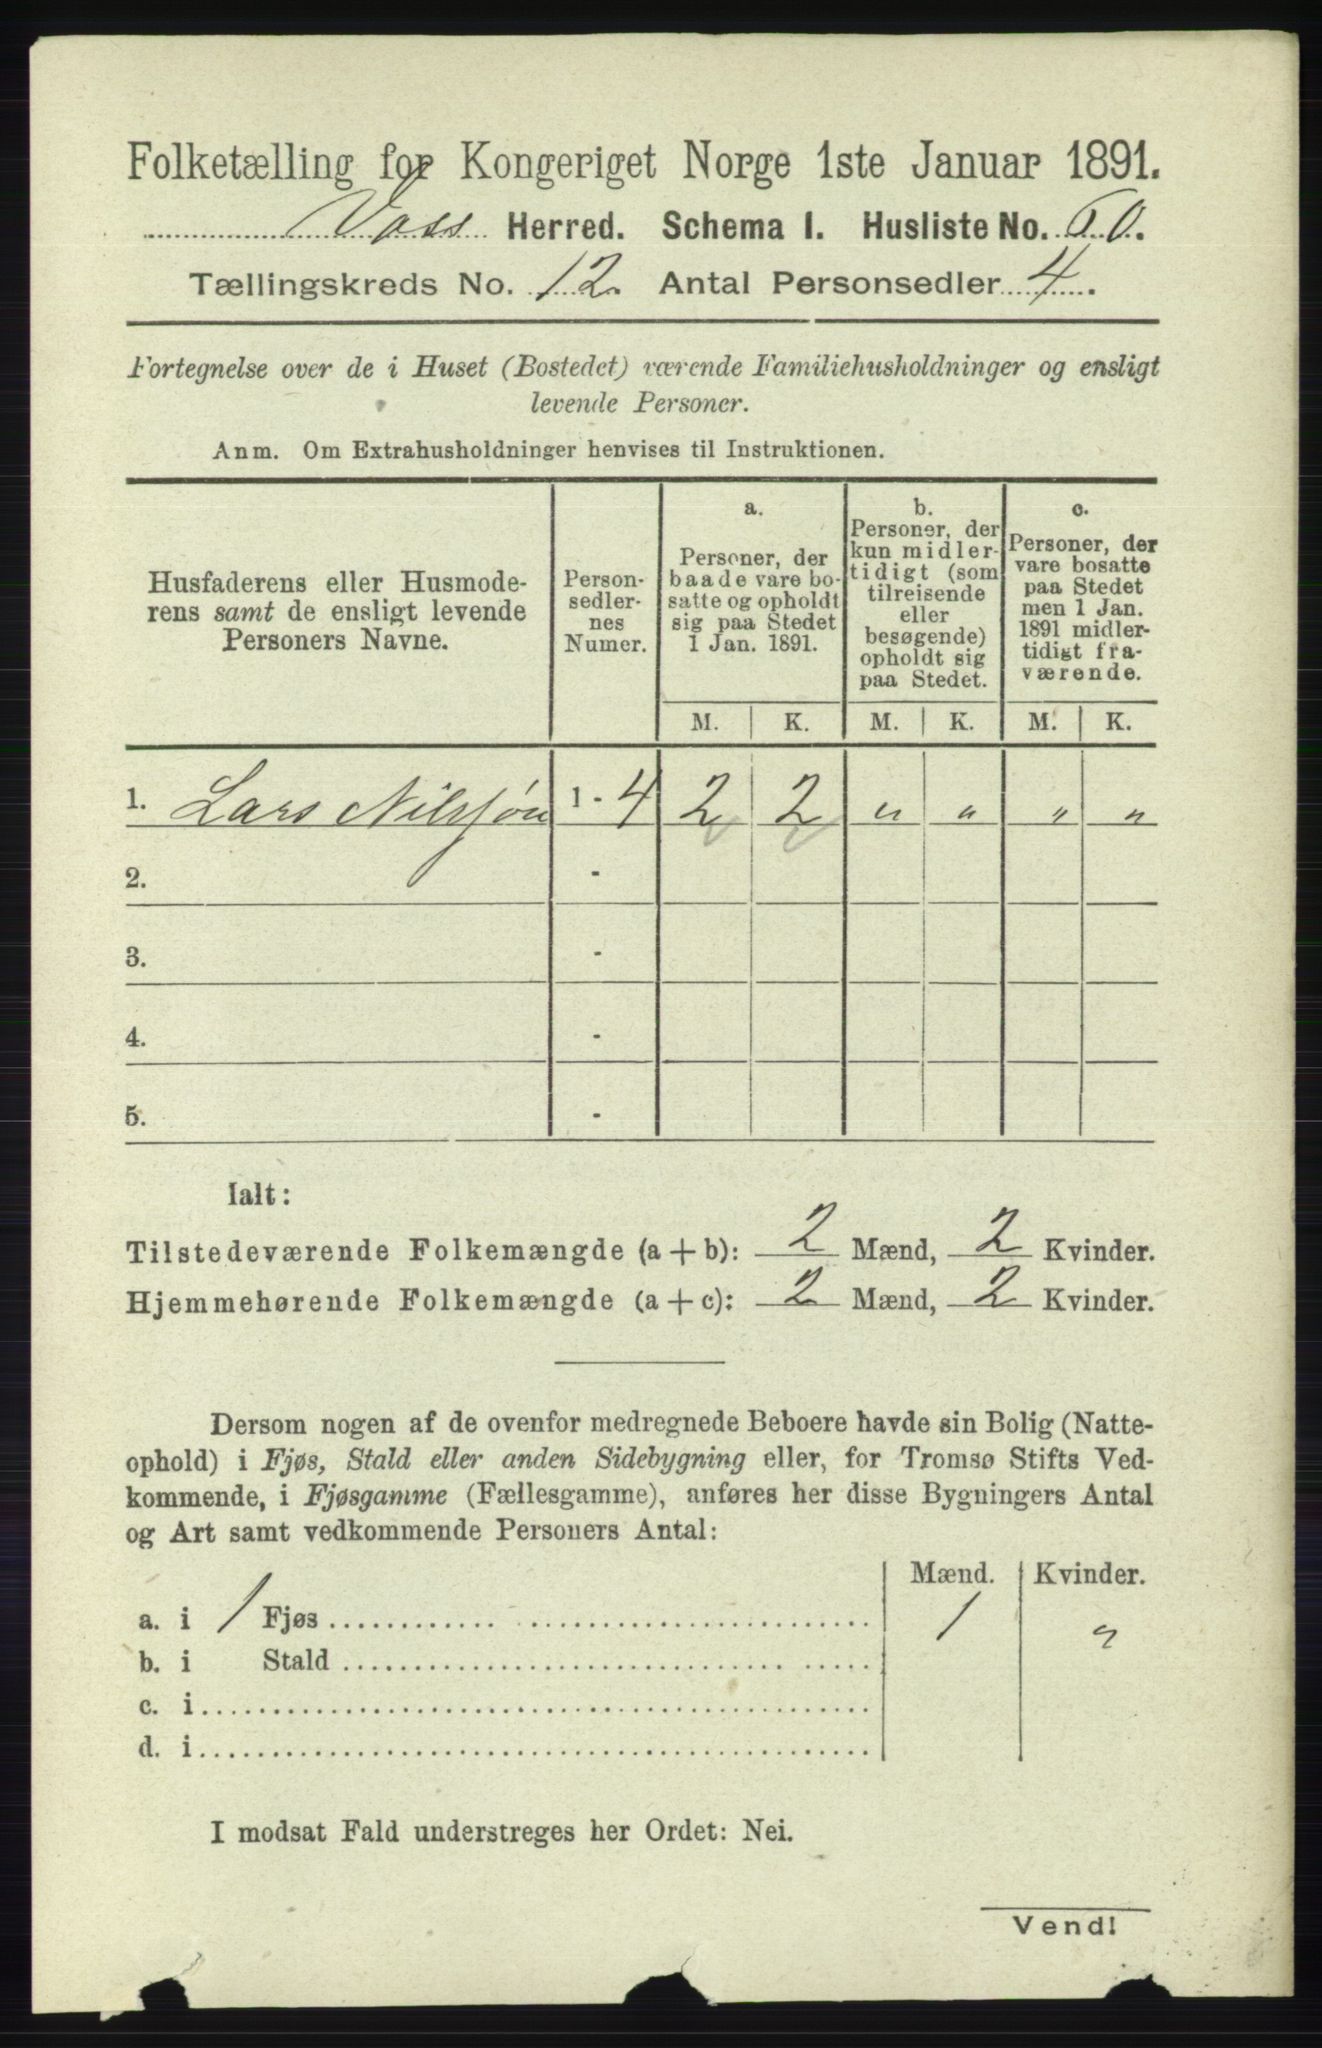 Folketælling for Kongeriget Norge 1ste Januar 1891.
Voss Herred. Schema I. Husliste No. 60.
Tællingskreds No. 12. Antal Personsedler 4.
Fortegnelse over de i Huset (Bostedet) værende Familiehusholdninger og ensligt
levende Personer.
Anm. Om Extrahusholdninger henvises til Instruktionen.
Husfaderens eller Husmode-
rens samt de ensligt levende
Personers Navne.
Person-
sedler-
nes
Numer.
a.
Personer, der
baade vare bo-
satte og opholdt
sig paa Stedet
1 Jan. 1891.
b.
Personer, der
kun midler-
tidigt (som
tilreisende
eller
besøgende)
opholdt sig
paa Stedet.
c.
Personer, der
vare bosatte
paa Stedet
men 1 Jan.
1891 midler-
tidigt fra-
værende.
M. K. M. K. M. K.
1. Lars Nilssøn 1 - 4 2 2 " " " "
2. -
3. -
4. -
5. -
Ialt:
Tilstedeværende Folkemængde (a + b): 2 Mænd, 2 Kvinder.
Hjemmehørende Folkemængde (a + c): 2 Mænd, 2 Kvinder.
Dersom nogen af de ovenfor medregnede Beboere havde sin Bolig (Natte-
ophold) i Fjøs, Stald eller anden Sidebygning eller, for Tromsø Stifts Ved-
kommende, i Fjøsgamme (Fællesgamme), anføres her disse Bygningers Antal
og Art samt vedkommende Personers Antal:
Mænd. Kvinder.
a. i 1 Fjøs 1 "
b. i Stald
c. i
d. i
I modsat Fald understreges her Ordet: Nei.
Vend!